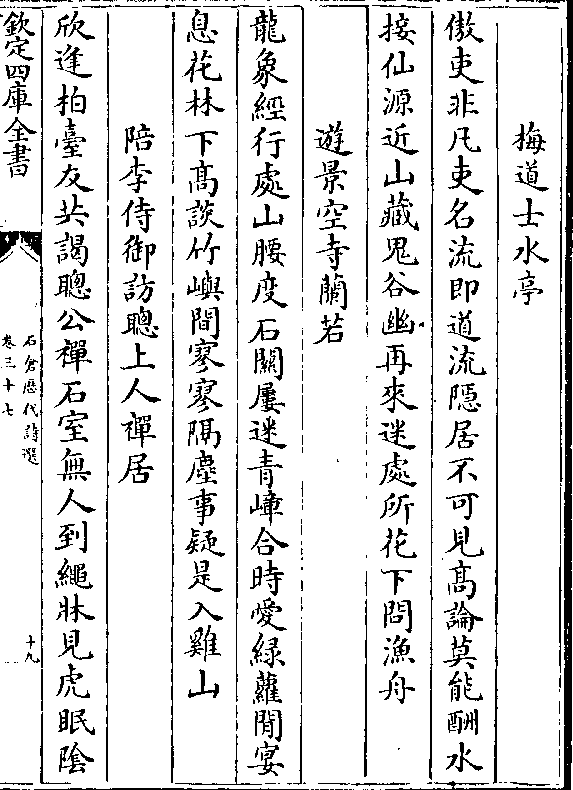 梅道士水亭
傲吏非凡吏名流即道流隱居不可見髙論莫能酬水
接仙源近山藏鬼谷幽再來迷處所花下問漁舟
遊景空寺蘭若
龍象經行處山腰度石關屢迷青嶂合時愛緑蘿閒宴
息花林下髙談竹嶼間寥寥隔塵事疑是入雞山
陪李侍御訪聰上人禪居
欣逢柏臺友共謁聰公禪石室無人到繩牀見虎眠陰
欽定四庫全書
石倉歴代詩選
卷三十七
十九